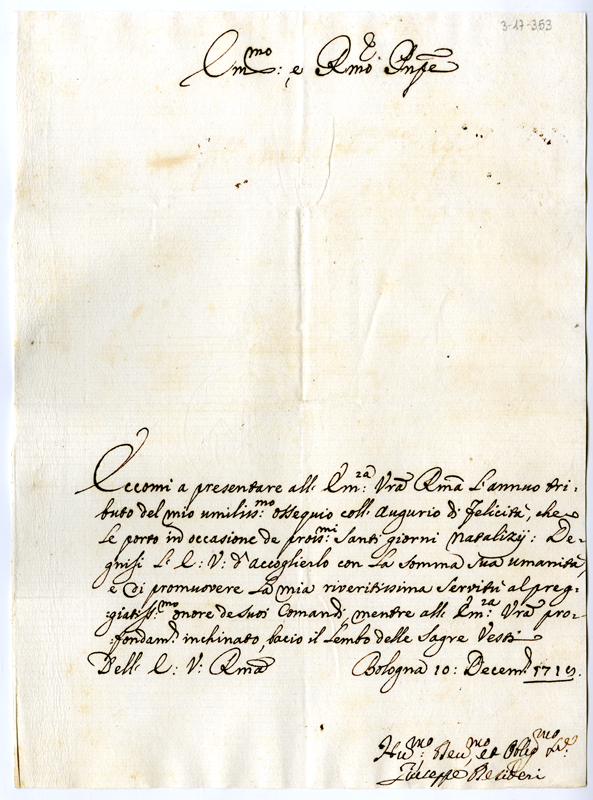 3-17-353
Em.mo: e Rmo Pnpe
Eccomi a presentare all' Em.za Vra Rma L'annuo tri-
buto del mio umiliss.mo ossequio coll' Augurio di felicità, che
Le porto in occasione de pross.mi Santi giorni natalizij: De-
gnisi L' E: V: d'accoglierlo con La somma sua umanità,
e di promuovere La mia riveritissima servitù al preg-
giatiss.mo onore de suoi Comandi, mentre all' Em.za Vra pro-
fondam.e inchinato, bacio il Lembo delle Sagre Vesti
Dell' E: V: Rma Bologna 10: Decemb.
Hu.mo: Deu.mo, et Oblig.mo
Giuseppe